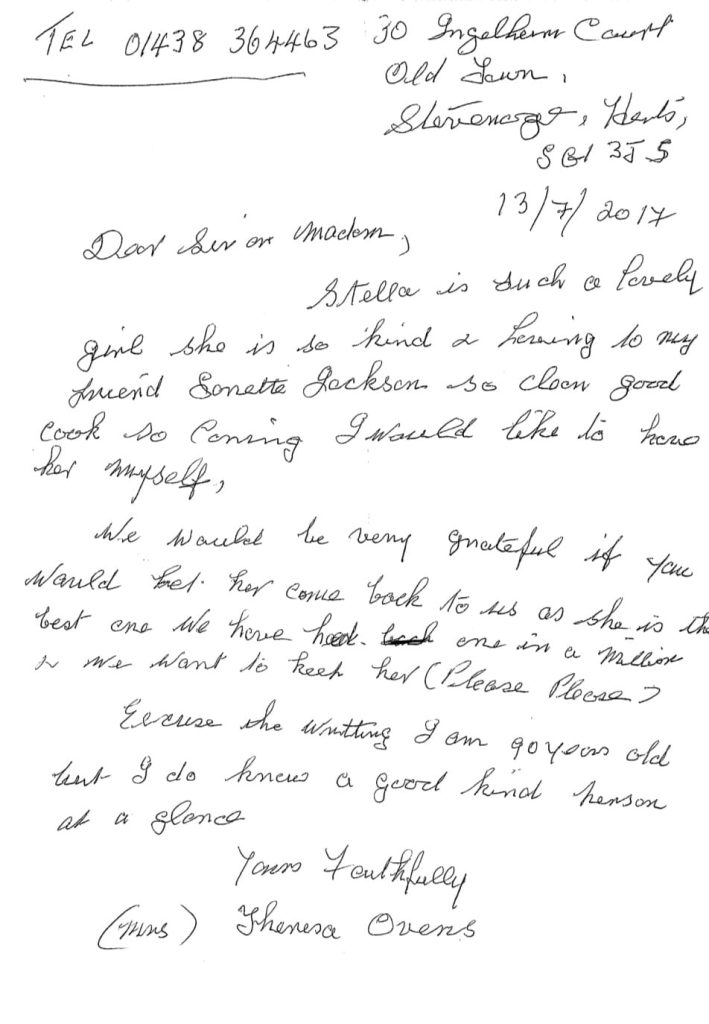 TEL 01438 364463 30 Ingelheim Court
Old Town,
Stevenage, Herts,
SG1 3JS
13/7/2017
Dear Sir or Madam,
Stella is such a lovely
girl she is so kind & loving to my
friend Sonette Jackson so clean good
cook so caring I would like to have
her myself,
We would be very grateful if you
would let her come back to us as she is the
best one we have had. one in a million
& we want to keep her (Please Please)
Excuse the writting I am 90 years old
but I do know a good kind person
at a glance
Yours Faithfully
(Mrs) Theresa Ovens